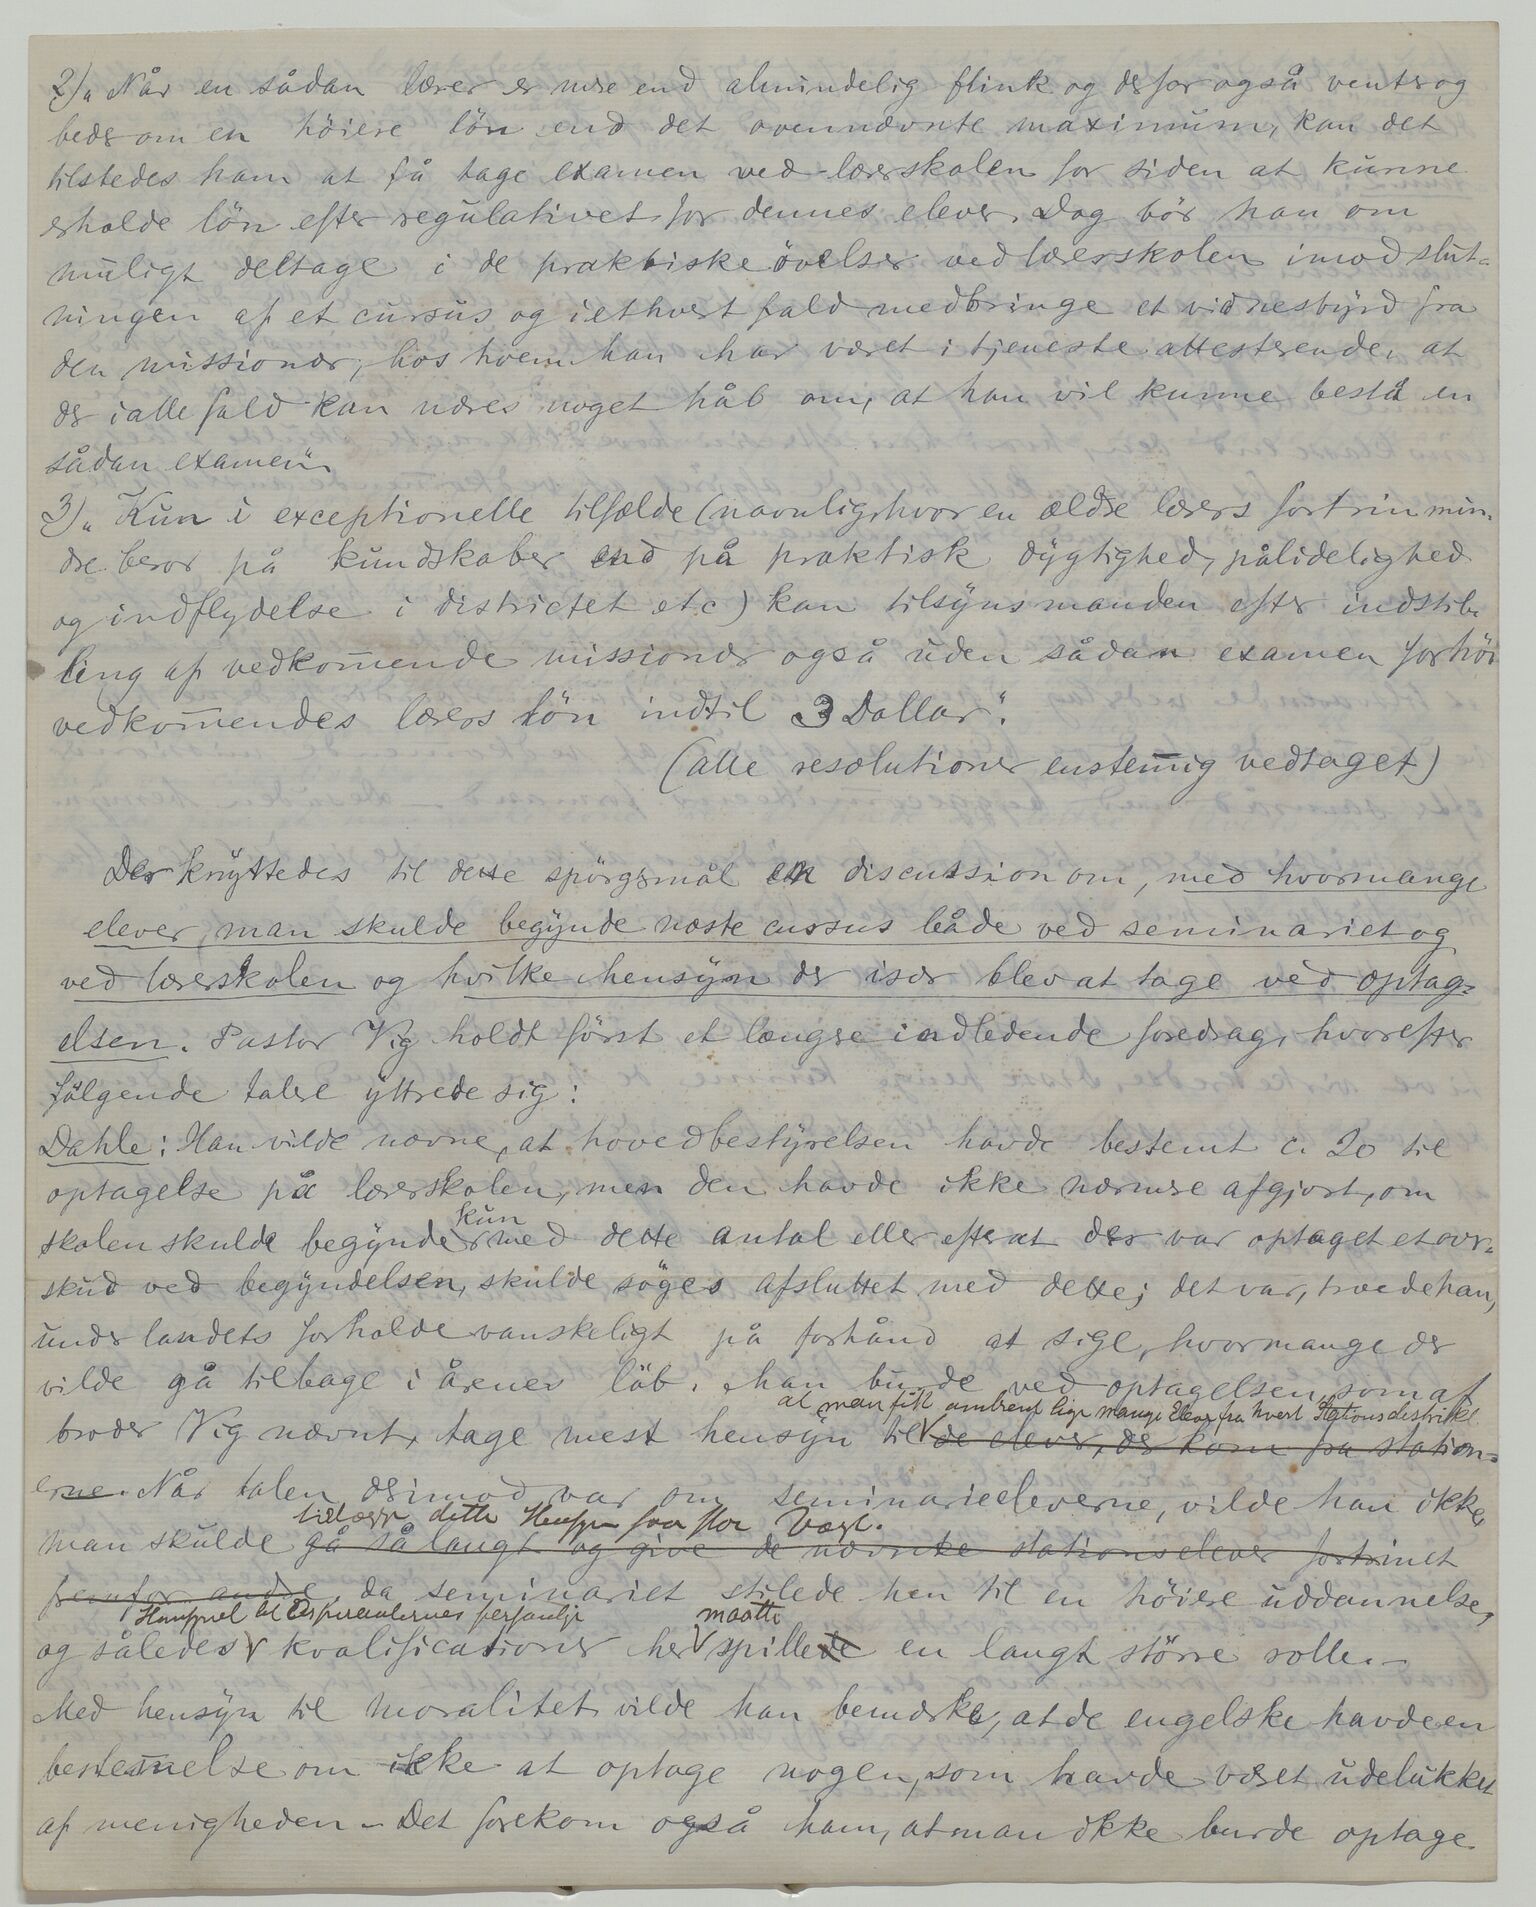 2) „Når en sådan lærer er mere end almindelig flink og derfor også venter og
beder om en höiere lön end det ovennævnte maximum, kan det
tilstedes ham at få tage examen ved lærerskolen for siden at kunne
erholde lön efter regulativet for dennes elever. Dog bör han om
muligt deltage i de praktiske övelser ved lærerskolen imod slut-
ningen af et cursus og i ethvert fald medbringe et vidnesbyrd fra
den missionær, hos hvem han har været i tjeneste attesterende, at
der i alle fald kan næres noget håb om, at han vil kunne bestå en
sådan examen“.
3) „Kun i exceptionelle tilfælde (navnlig hvor en ældre lærers fortrin min-
dre beror på kundskaber end på praktisk dygtighed, pålidelighed
og indflydelse i districtet etc) kan tilsynsmanden efter indstil-
ling af vedkommende missionær også uden sådan examen forhöie
vedkommendes lærers lön indtil 3 Dollar“.
(alle resolutioner enstemmig vedtaget)
Der knyttedes til dette spörgsmål en discussion om, med hvormange
elever man skulde begynde næste cursus både ved seminariet og
ved lærerskolen og hvilke hensyn der især blev at tage ved optag-
elsen. Pastor Vig holdt först et længre indledende foredrag, hvorefter
fölgende talere yttrede sig:
Dahle: Han vilde nævne, at hovedbestyrelsen havde bestemt c. 20 til
optagelse på lærerskolen, men den havde ikke nærmere afgjort, om
kun
skolen skulde begynde med dette antal eller efterat der var optaget et over-
skud ved begyndelsen, skulde söges afsluttet med dette; det var, troede han,
under landets forholde vanskeligt på forhånd at sige, hvormange der
vilde gå tilbage i årenes löb. Man burde ved optagelsen, som af
at man fik omtrent lige mange Elever fra hvert Stationsdistrikt
broder Vig nævnt, tage mest hensyn til de elever, der kom fra station-
erne. Når talen derimod var om seminarieeleverne, vilde han ikke,
tillægge dette Hensyn saa stor Vægt.
man skulde gå så langt og give de nævnte stationselever fortrinet
fremfor andre, da seminariet stilede hen til en höiere uddannelse,
Hensynet til Aspiranternes personlige maatte
og således kvalificationer her spillede en langt större rolle. –
Med hensyn til moralitet vilde han bemærke, at de engelske havde en
bestemmelse om ikke at optage nogen, som havde været udelukket
af menigheden – Det forekom også ham, at man ikke burde optage